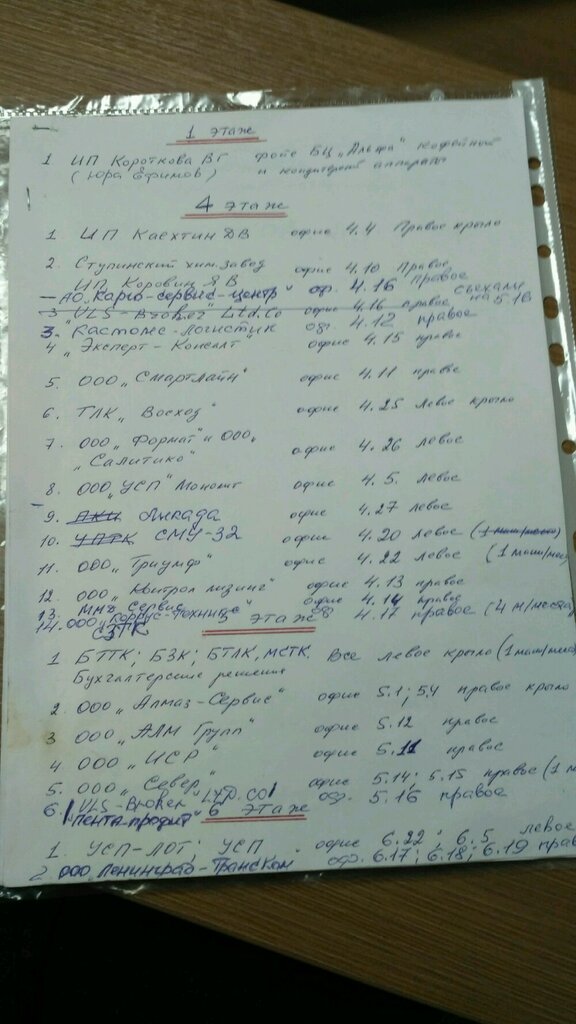 1 этаж
1 ИП Короткова ВГ фойе БЦ „Альфа" кофейный
(Юра Ефимов) и кондитерской аппараты
4 этаж
1 ИП Каехтин ДВ офис 4.4 Правое крыло
2. Ступинский хим. завод офис 4.10 Правое
ИП Коровин Я В оф. 4.16 правое
– АО „Карго-сервис-центр" съехали
3 "VLS-Broker" Ltd.Co офис 4.16 правое на 5.16
3. Кастомс-Логистик оф. 4.12 правое
4 „Эксперт-Консалт" офис 4.15 правое
5. ООО „Смартлайн" офис 4.11 правое
6. ТЛК „Восход" офис 4.25 левое крыло
7. ООО „Формат" и ООО „ офис 4.26 левое
„Салитико"
8. ООО „УСП" Монолит офис 4.5. левое
9. Анкада офис 4.27 левое
10. УПТК СМУ-32 офис 4.20 левое
11. ООО „Триумф" офис 4.22 левое (1 маш/мес
12. ООО „Контрол лизинг" офис 4.13 правое
13. Мнч Сервис офис 4.14 правое
14. ООО „Корпус-Техникс" оф 4.17 правое (4 м/места)
СЗТК
5 этаж
1 БТПК; БЗК; БТЛК, МСТК. Все левое крыло (1 маш/мес
Бухгалтерские решения
2. ООО „Алмаз-Сервис" офис 5.1; 5.4 правое крыло
3 ООО „АЛМ Групп" офис 5.12 правое
4 ООО „ИСР" офис 5.11 правое
5. ООО „Север" офис 5.14; 5.15 правое (1 м
6. "VLS-Broker" LTD.CO оф. 5.16 правое
"Пента продит"
6 этаж
1. УСП-ЛОТ; УСП офис 6.22; 6.5 левое
2 ООО Ленинград-Транском оф. 6.17; 6.18; 6.19 прав